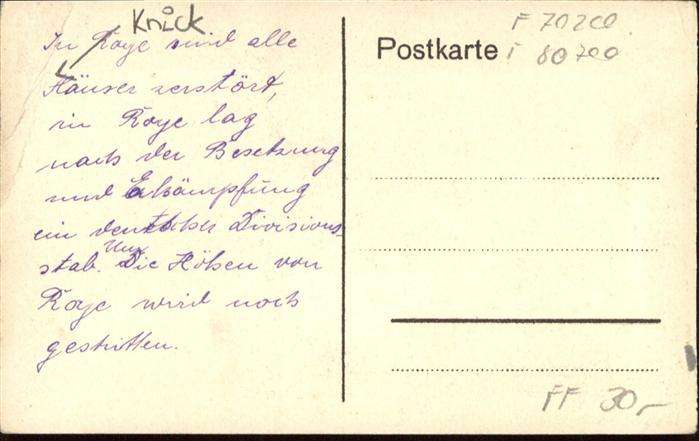 Knick
In Roye sind alle
Häuser zerstört,
in Roye lag
nach der Besetzung
und Erkämpfung
ein deutscher Divisions-
stab. Um Die Höhen von
Roye wird noch
gestritten.
Postkarte
F 70200
F 80700
FF 30,-